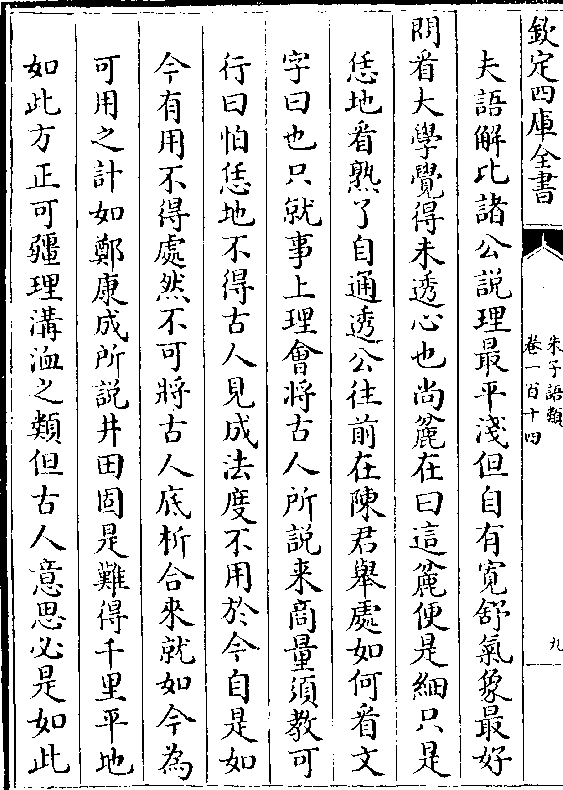 欽定四庫全書
朱子語類
卷一百十四
九
夫語解比諸公説理最平淺但自有寛舒氣象最好
問看大學覺得未透心也尚麄在曰這麄便是細只是
恁地看熟了自通透公往前在陳君舉處如何看文
字曰也只就事上理會將古人所説来商量須教可
行曰怕恁地不得古人見成法度不用於今自是如
今有用不得處然不可將古人底析合來就如今為
可用之計如鄭康成所説井田固是難得千里平地
如此方正可疆理溝洫之類但古人意思必是如此